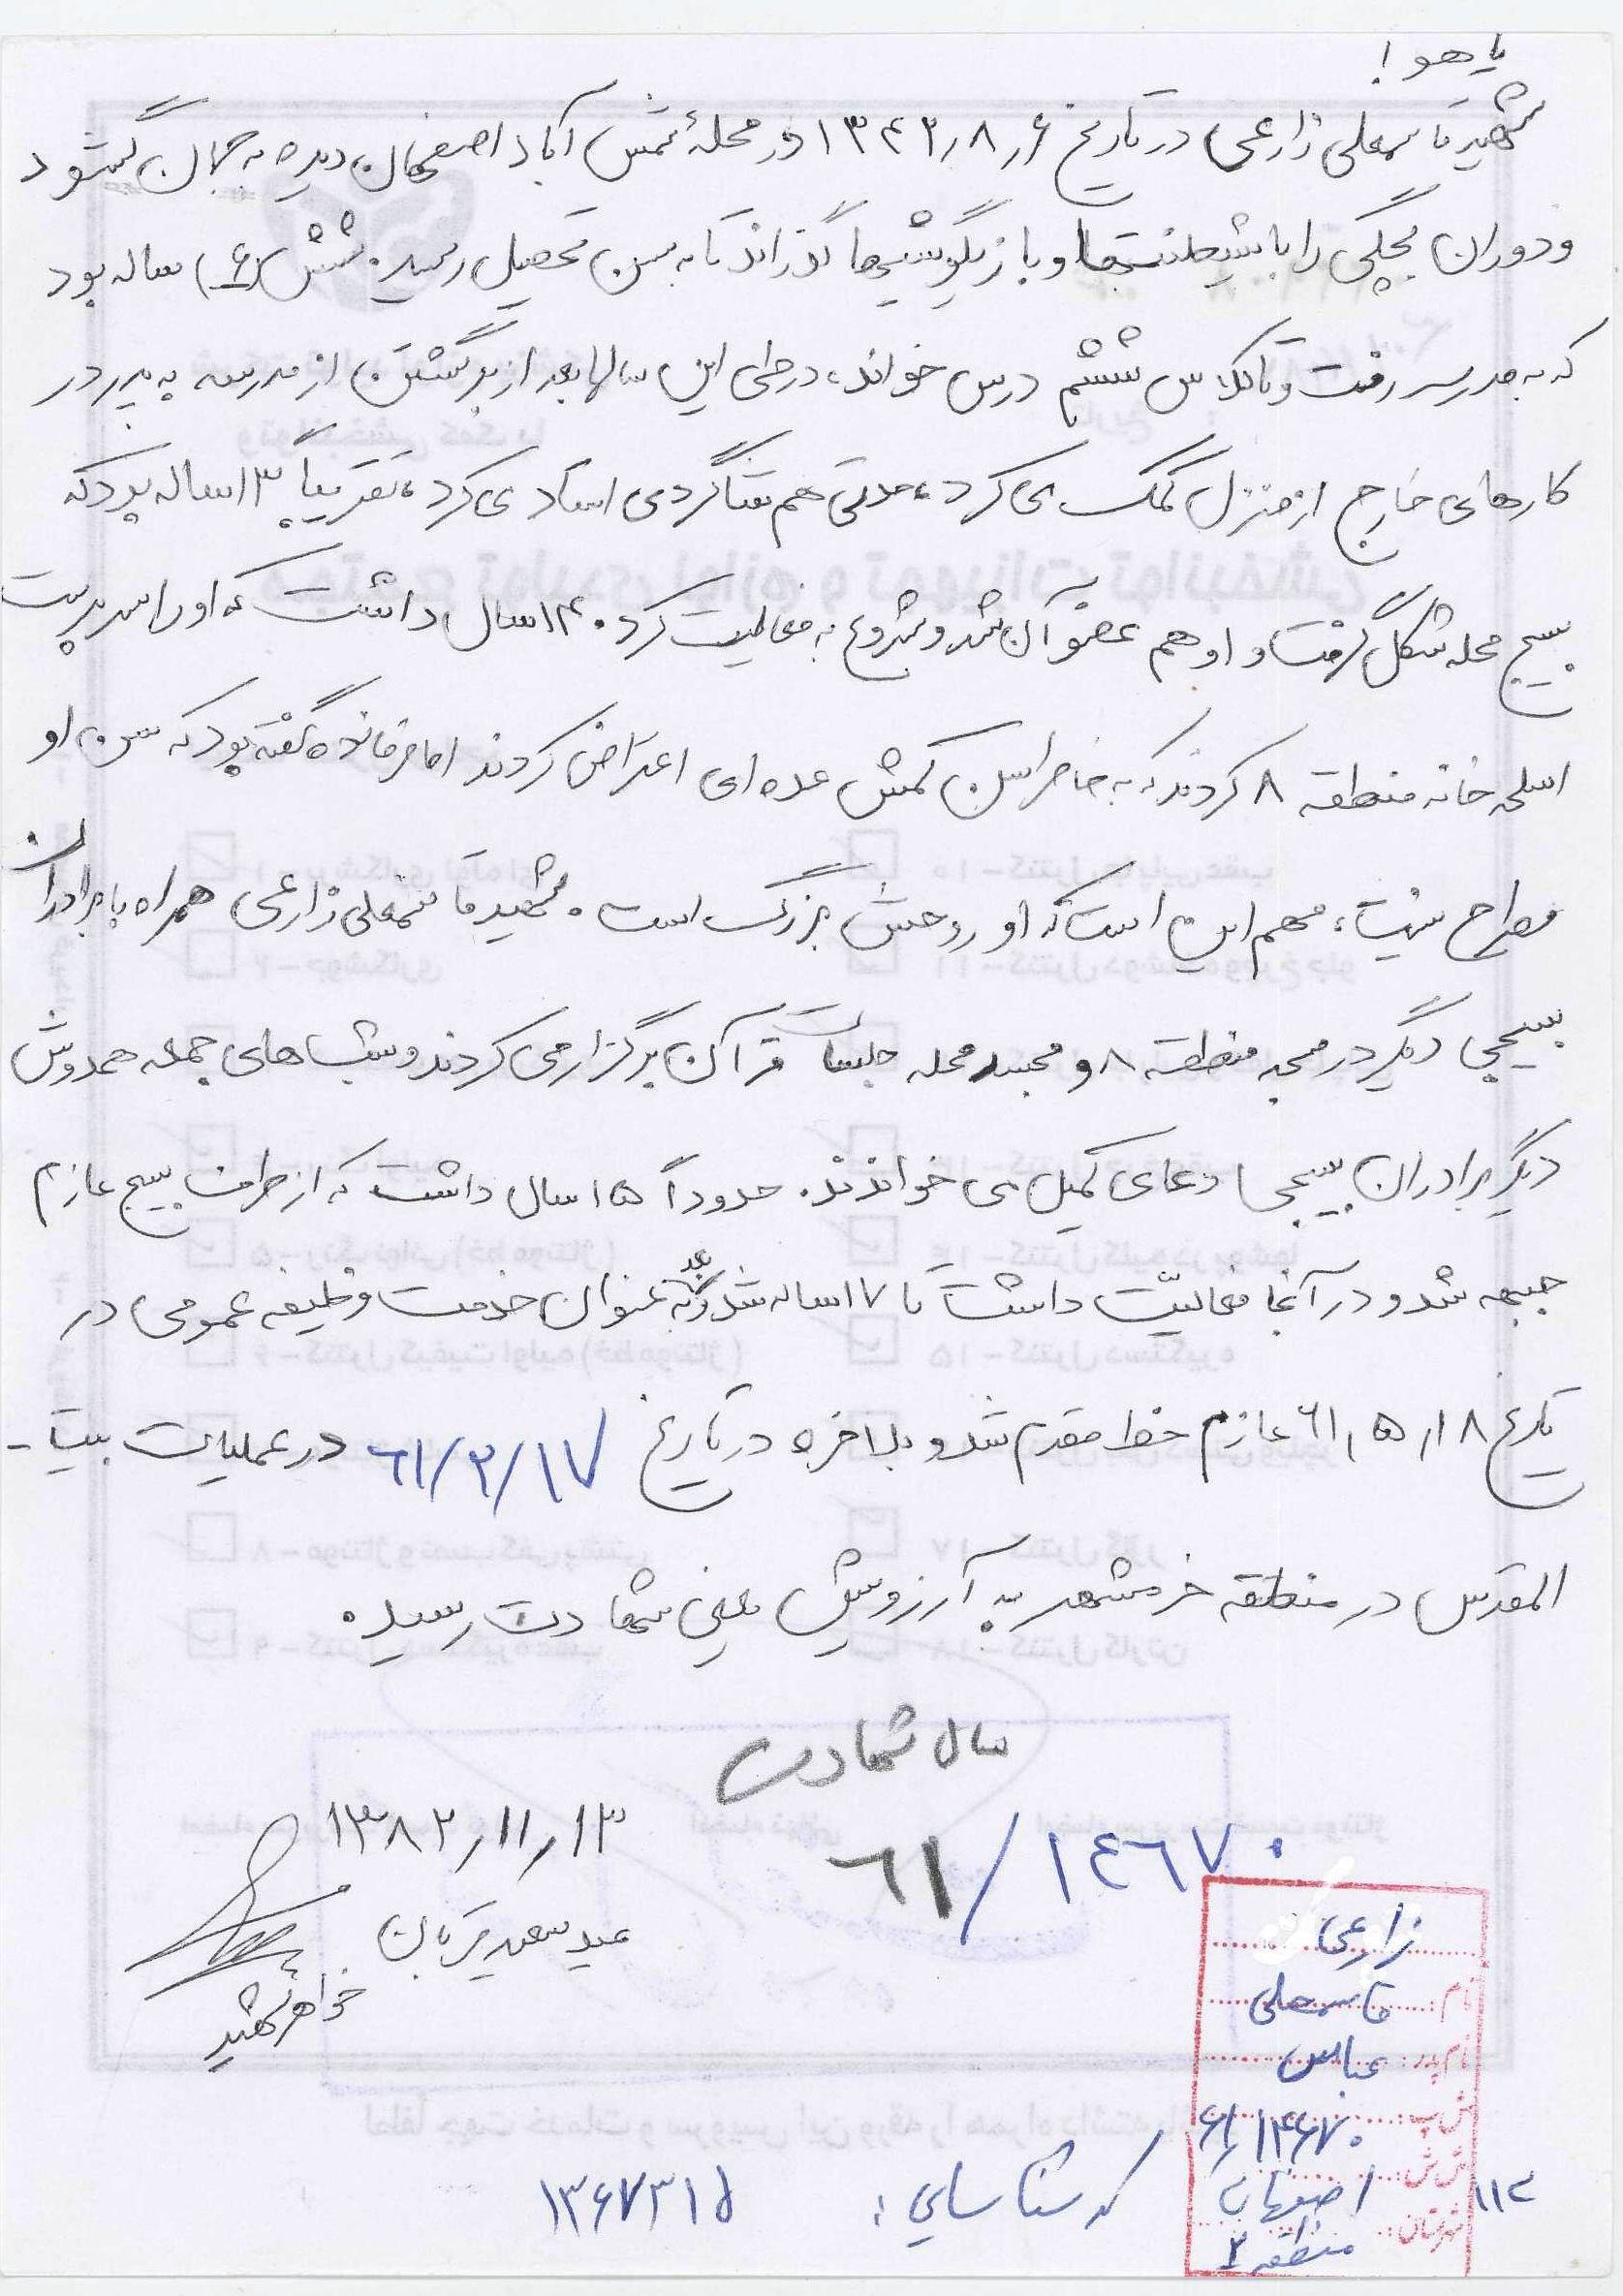 یا هو !
شهید قاسمعلی زارعی در تاریخ ۱۳۴۳٫۸٫۶ در محلهٔ شمس آباد اصفهان دیده به جهان گشود
و دوران بچگی را با شیطنتها و بازیگوشیها گذراند تا به سن تحصیل رسید. شش (۶) ساله بود
که به مدرسه رفت و تا کلاس ششم درس خواند، در طی این سالها بعد از برگشتن از مدرسه به پدر در
کارهای خارج از منزل کمک می کرد، مدتی هم شاگردی استاد می کرد، تقریباً ۱۳ ساله بود که
بسیج محله شکل گرفت و او هم عضو آن شد و شروع به فعالیت کرد. ۱۴ سال داشت که او را سرپرست
اسلحه خانه منطقه ۸ کردند که به خاطر سن کمش عده ای اعتراض کردند اما فرمانده گفته بود که سن او
مطرح نیست، مهم این است که او روحش بزرگ است. شهید قاسمعلی زارعی همراه با برادران
بسیجی دیگر در مسجد منطقه ۸ و مسجد محله جلسات قرآن برگزار می کردند و شب های جمعه همدوش
دیگر برادران بسیجی دعای کمیل می خواندند. حدوداً ۱۵ سال داشت که از طرف بسیج عازم
جبهه شد و در آنجا فعالیّت داشت تا ۱۷ ساله شد و بعد به عنوان خدمت وظیفه عمومی در
تاریخ ۶۱٫۵٫۱۸ عازم خط مقدم شد و بلاخره در تاریخ ۶۱/۳/۱۷ در عملیات بیت -
المقدس در منطقه خرمشهر به آرزویش یعنی شهادت رسید.
سال شهادت
۶۱/۱۴۶۷۰
۱۳۸۲٫۱۱٫۱۳
خواهر شهید
زارعی
نام: قاسمعلی
نام پدر: عباس
ش پ: ۶۱٫۱۴۶۷۰
ش ش: ۱۱۲
شهرستان: اصفهان
منطقه ۲
کد شناسایی: ۱۳۶۷۳۱۵